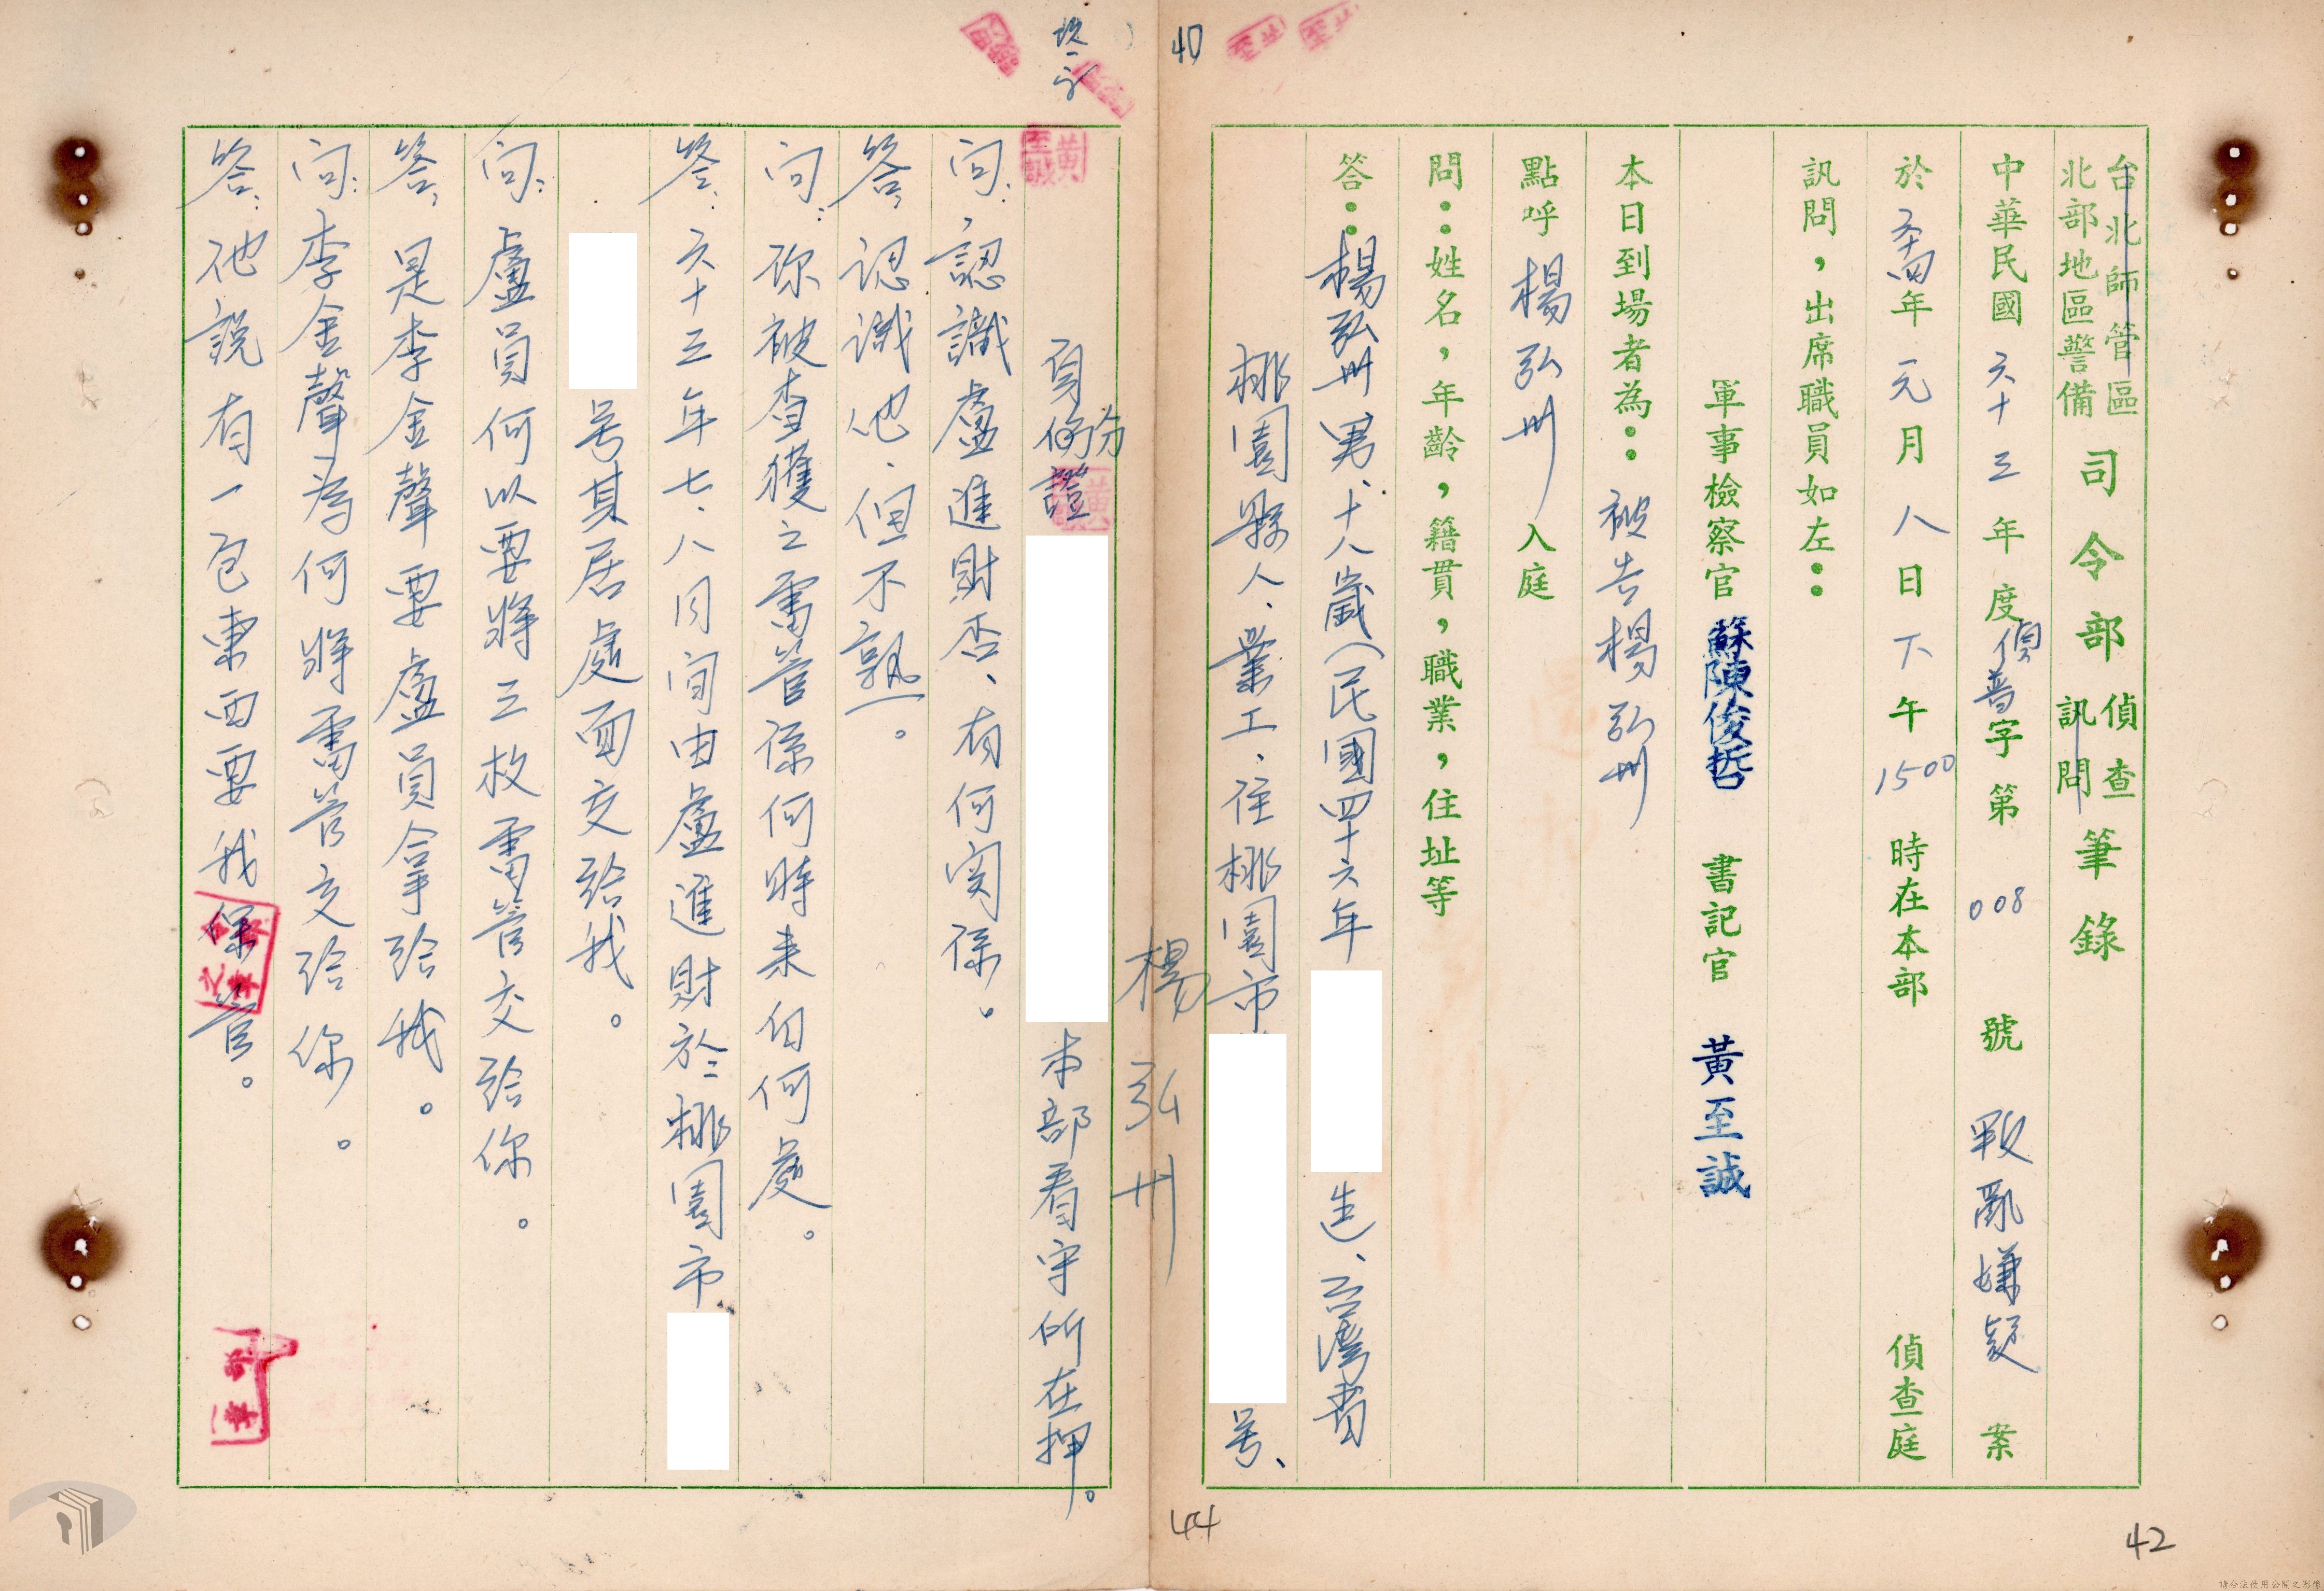 台北師管區
北部地區警備
司令部
偵查
訊問
筆錄
中華民國六十三年度偵普字第008號叛亂嫌疑案
於六十四年元月八日下午1500時在本部偵查庭
訊問，出席職員如左：
軍事檢察官 蘇陳俊哲 書記官 黃至誠
本日到場者為：被告楊弘州
點呼楊弘州入庭
問：姓名，年齡，籍貫，職業，住址等
答：楊弘州男、十八歲（民國四十六年
生、台灣省
桃園縣人、業工、住桃園市
号、
楊弘州
身份證
份
本部看守所在押。
問：認識盧進財否、有何関係。
答：认識他、但不熟。
問：你被查獲之雷管係何時来自何處。
答：六十三年七、八月间由盧進財於桃園市
号其居處面交给我。
問：盧員何以要將三枚雷管交給你。
答：是李金聲要盧員拿給我。
問：李金聲為何將雷管交給你。
答：他說有一包東西要我保管。
黃至誠
40
44
42
請合法使用公開之影像